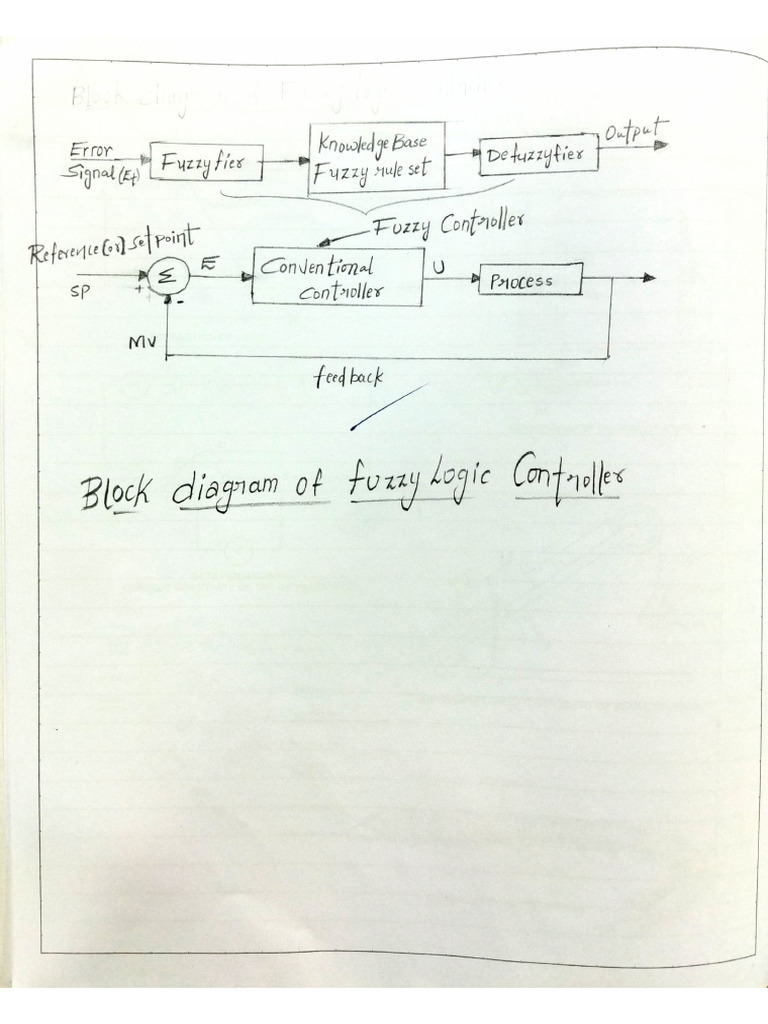 Block diagram of Fuzzy logic
Error
Signal (Et)
Fuzzyfier
Knowledge Base
Fuzzy rule set
Defuzzyfier
Output
Fuzzy Controller
Reference (or) setpoint
SP
Σ
+
-
E
Conventional
Controller
U
Process
MV
feedback
Block diagram of fuzzy Logic Controller